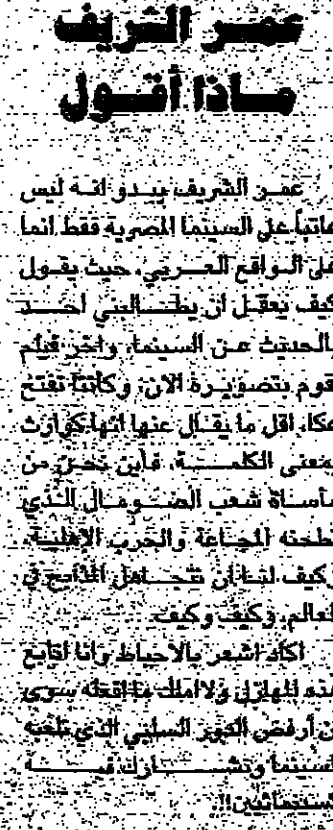 عمـر الشريف
مـاذا أقـول
عمـر الشريف يبـدو انـه ليس
عاتباً على السينما المصرية فقط انما
على الـواقع العـربي، حيث يقـول
كيف يعقـل ان يطـالبني احـد
بالحديث عـن السينما، واخر فيلم
نقوم بتصويـرة الان، وكأننا نفتح
عكا، اقل ما يقـال عنها انها كوارث
بمعنى الكلمـة، فأين نحـن من
مأسـاة شعب الصـومـال الـذي
طحنه المجـاعة والحرب الاهلية،
وكيف لنـا ان نتجـاهل المذابح في
العالم، وكيف وكيف
اكاد اشعر بالاحباط وانا اتابع
هذه المهازل ولا املك ما افعله سوى
ان أرفض الدور السلبي الذي تلعبه
السينما وتشـارك فيـه